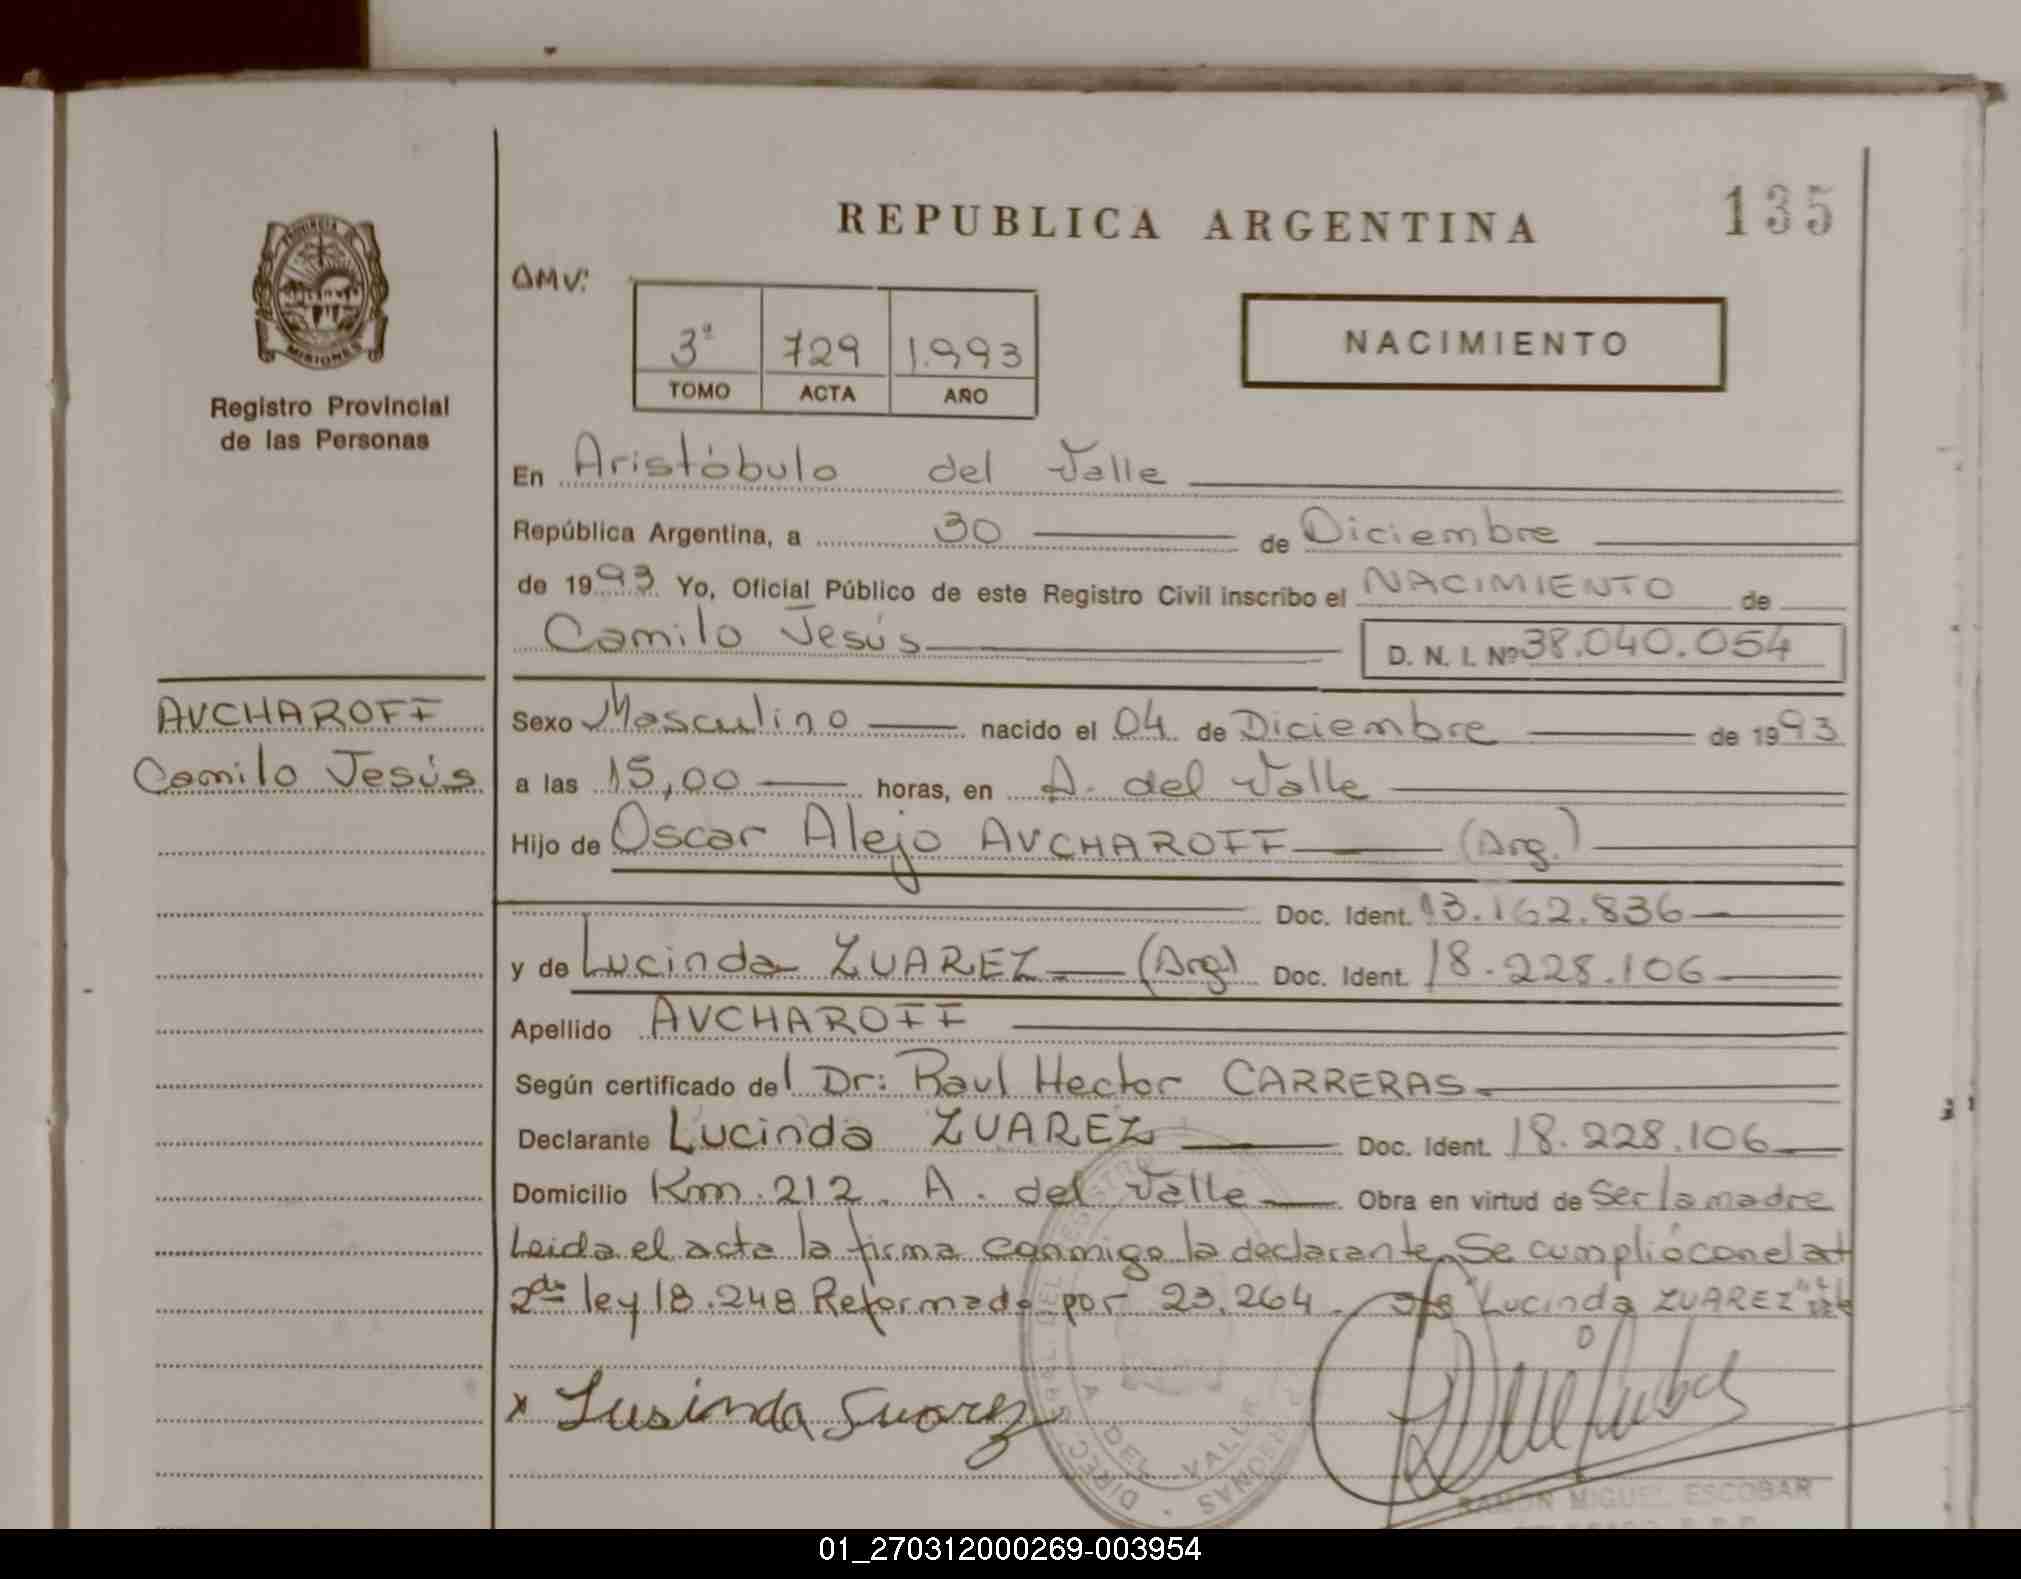 REPUBLICA ARGENTINA
135
PROVINCIA DE
MISIONES
Registro Provincial
de las Personas
OMV:
3ª 729 1.993
TOMO ACTA AÑO
NACIMIENTO
En Aristóbulo del Valle
República Argentina, a 30 de Diciembre
de 1993 Yo, Oficial Público de este Registro Civil inscribo el NACIMIENTO de
Camilo Jesús D. N. I. Nº 38.040.054
AVCHAROFF
Camilo Jesús
Sexo Masculino nacido el 04 de Diciembre de 1993
a las 15,00 horas, en A. del Valle
Hijo de Oscar Alejo AVCHAROFF (Arg.)
Doc. Ident. 13.162.836
y de Lucinda ZUAREZ (Arg) Doc. Ident. 18.228.106
Apellido AVCHAROFF
Según certificado del Dr: Raul Hector CARRERAS
Declarante Lucinda ZUAREZ Doc. Ident. 18.228.106
Domicilio Km. 212. A. del Valle Obra en virtud de Ser la madre
Leida el acta la firma conmigo la declarante. Se cumplió con el art
2do ley 18.248 Reformado por 23.264. "Lucinda ZUAREZ"
x Lusinda Suarez
DIREC. GRAL. DEL REGISTRO
PERSONAS
A. DEL VALLE
RAMON MIGUEL ESCOBAR
01_270312000269-003954